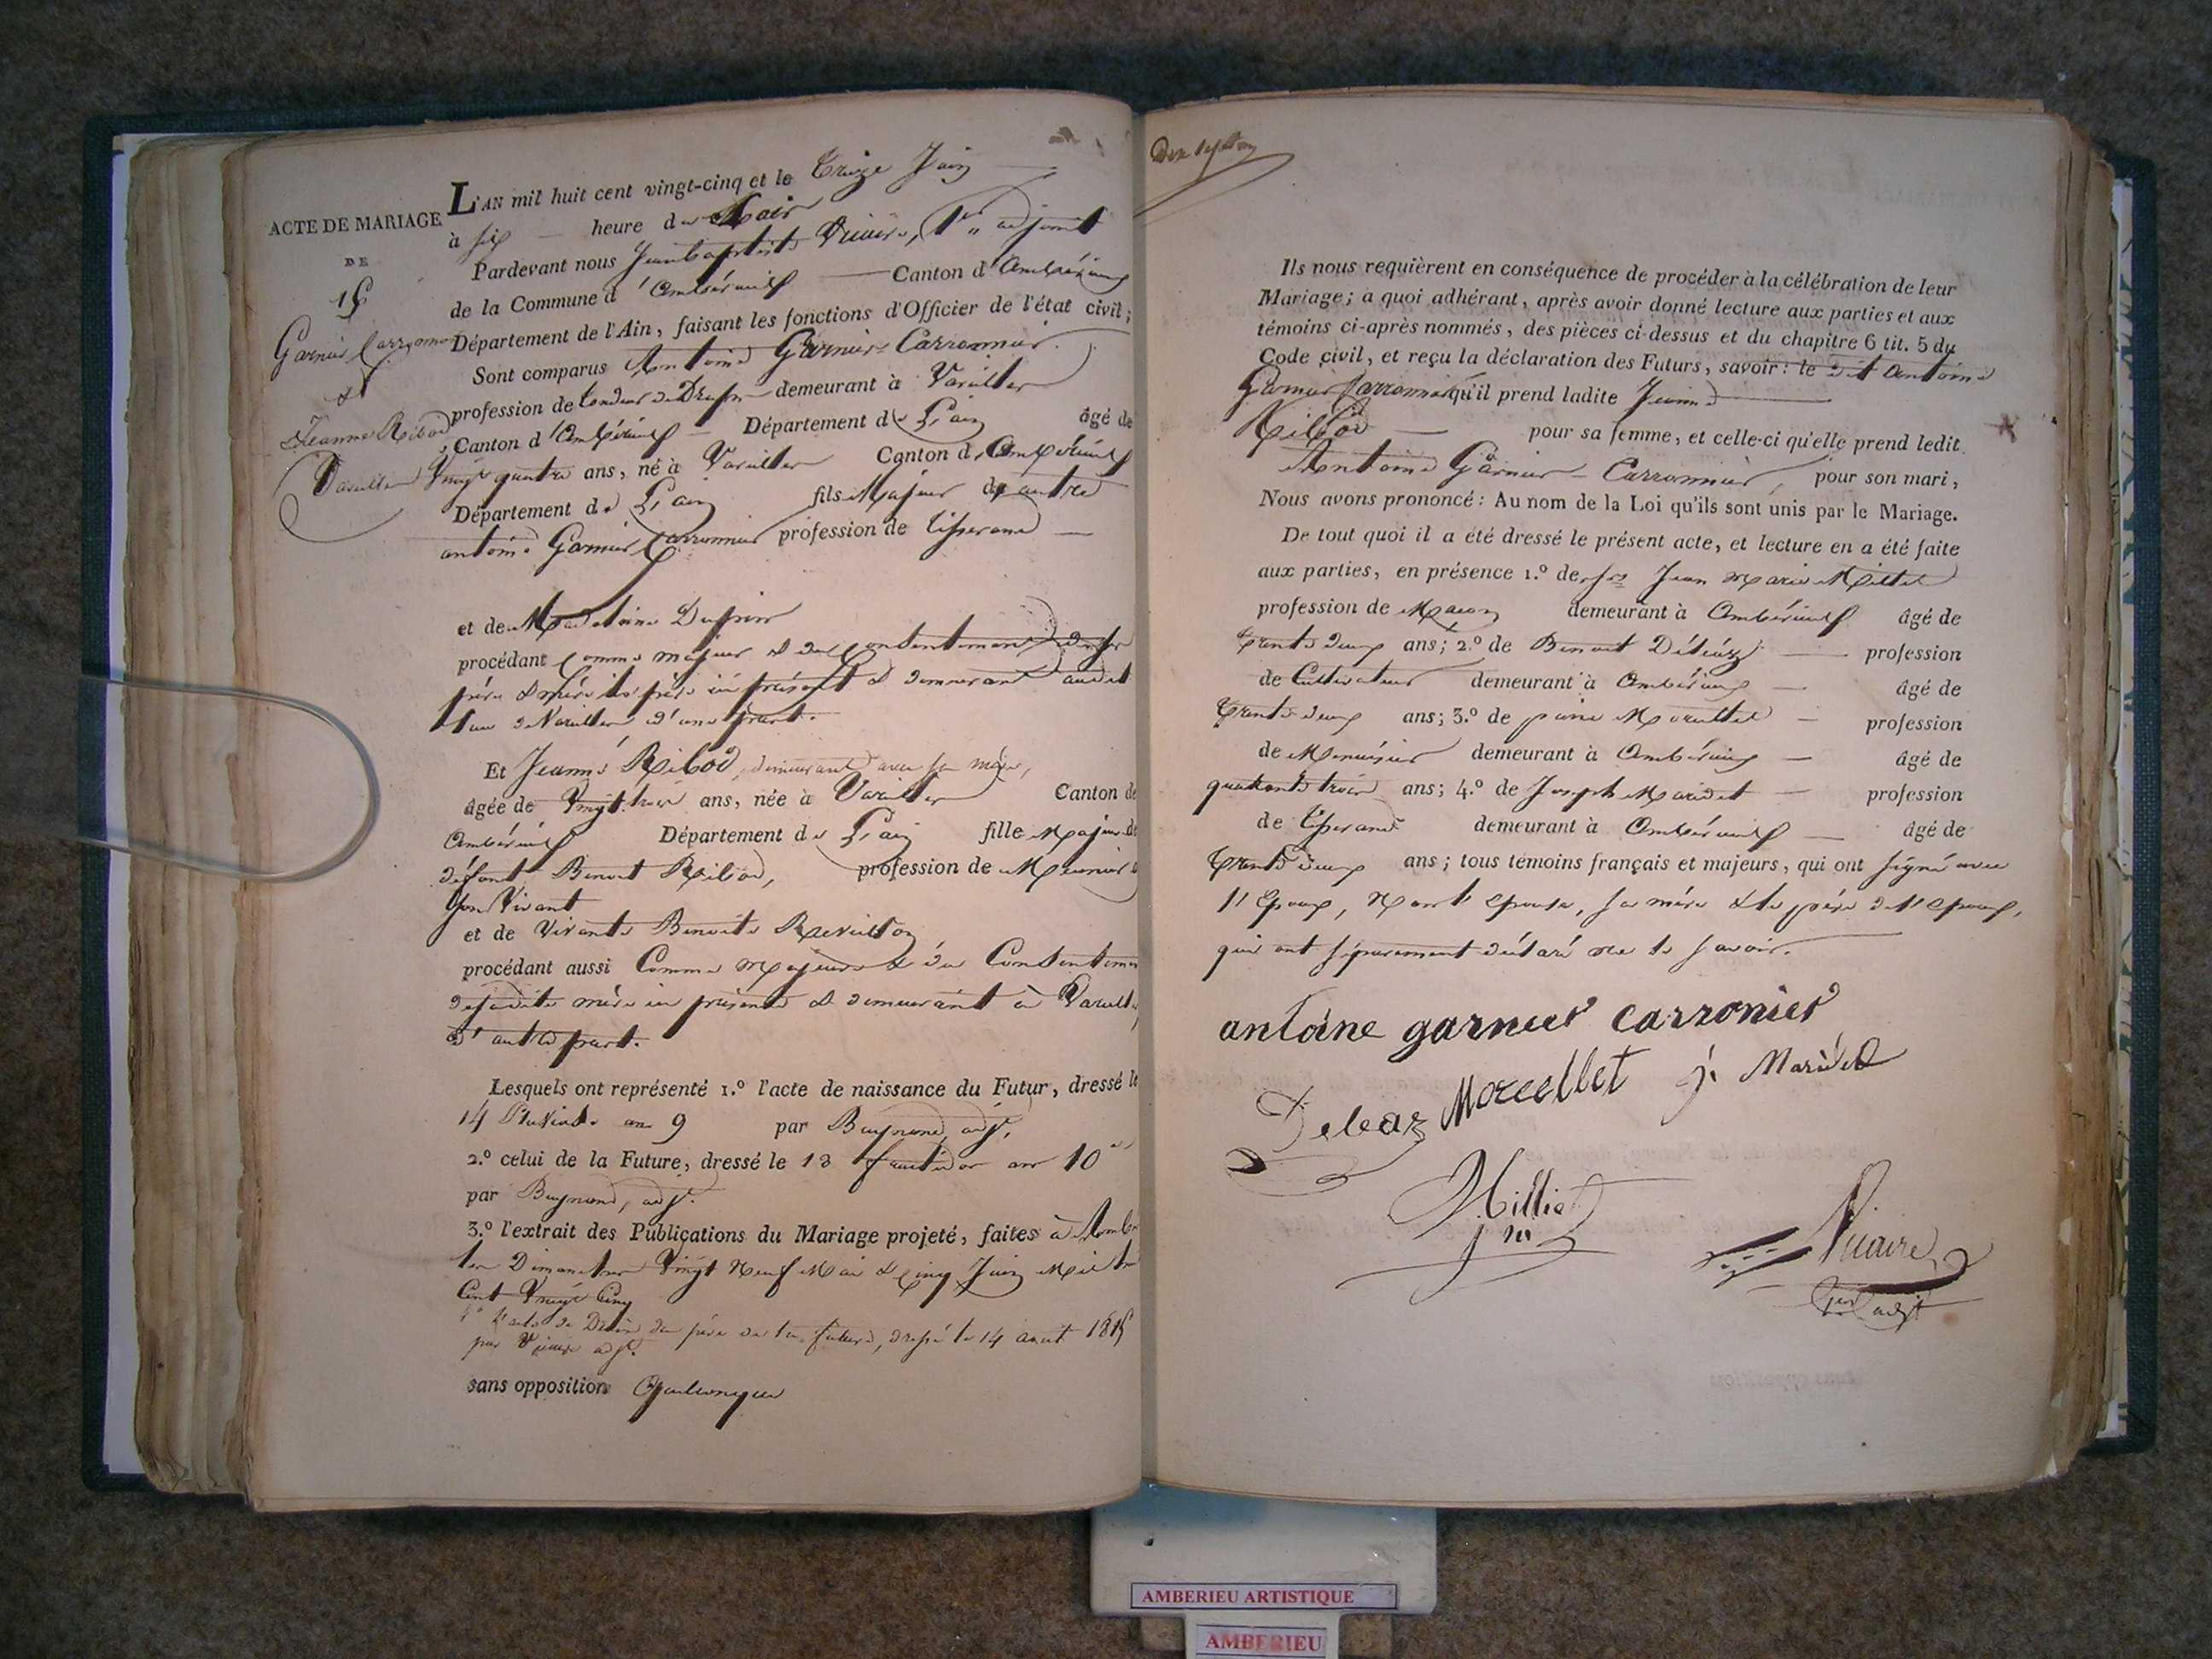 ACTE DE MARIAGE
DE
Garnier Carronnier
&
Jeanne Ribod
Vareilles
L'AN mil huit cent vingt-cinq et le Treize Juin
à six heure du Soir
Pardevant nous Jean baptiste Vicaire, 1er adjoint
de la Commune d'Ambérieux Canton d'Ambérieux
Département de l'Ain, faisant les fonctions d'Officier de l'état civil;
Sont comparus Antoine Garnier-Carronnier
profession de tondeur de Draps demeurant à Vareilles
Canton d'Ambérieux Département de L'ain âgé de
Vingt quatre ans, né à Vareilles Canton d'Ambérieux
Département de L'ain fils Majeur de autre
antoine Garnier Carronnier profession de tisserand
et de
procédant Comme majeur & du Consentement de ses
père & mère le père ici présent & demeurant audit
lieu de Vareilles d'une part.
Et Jeanne Ribod, demeurant avec sa mère,
âgée de Vingt trois ans, née à Vareilles Canton de
Ambérieux Département de L'ain fille Majeure de
défunt Benoit Ribod, profession de Meunier
son Vivant
et de Vivante Benoite
procédant aussi Comme Majeure & du Consentement
de sadite mère ici présente & demeurant à Vareilles
d'autre part.
Lesquels ont représenté 1.º l'acte de naissance du Futur, dressé le
14 Pluviose an 9 par adjt.
2.º celui de la Future, dressé le 18 fructidor an 10
par adjt.
3.º l'extrait des Publications du Mariage projeté, faites à Ambr
les Dimanches Vingt Neuf Mai & Cinq Juin Mil huit
Cent Vingt Cinq
4º l'acte de Décès du père de la future, dressé le 14 aout 1815
par Vicaire adjt.
sans opposition Quelconque
Ils nous requièrent en conséquence de procéder à la célébration de leur
Mariage; a quoi adhérant, après avoir donné lecture aux parties et aux
témoins ci-après nommés, des pièces ci-dessus et du chapitre 6 tit. 5 du
Code civil, et reçu la déclaration des Futurs, savoir: le dit Antoine
Garnier Carronnier qu'il prend ladite Jeanne
Ribod pour sa femme, et celle-ci qu'elle prend ledit
Antoine Garnier-Carronnier, pour son mari,
Nous avons prononcé: Au nom de la Loi qu'ils sont unis par le Mariage.
De tout quoi il a été dressé le présent acte, et lecture en a été faite
aux parties, en présence 1.º de Jean Marie Milliet
profession de Maçon demeurant à Ambérieux âgé de
trente deux ans; 2.º de Benoit profession
de Cultivateur demeurant à Ambérieux âgé de
trente deux ans; 3.º de profession
de Menuisier demeurant à Ambérieux âgé de
quarante trois ans; 4.º de Joseph Maridet profession
de tisserand demeurant à Ambérieux âgé de
trente deux ans; tous témoins français et majeurs, qui ont signé avec
l'Epoux, Non l'epouse, sa mère & le père de l'epoux,
qui ont séparement déclaré ne le savoir.
antoine garnier carronier
Deleaz Morcellet j. Maridet
Milliet
Vicaire
1er adjt
AMBERIEU ARTISTIQUE
AMBERIEU